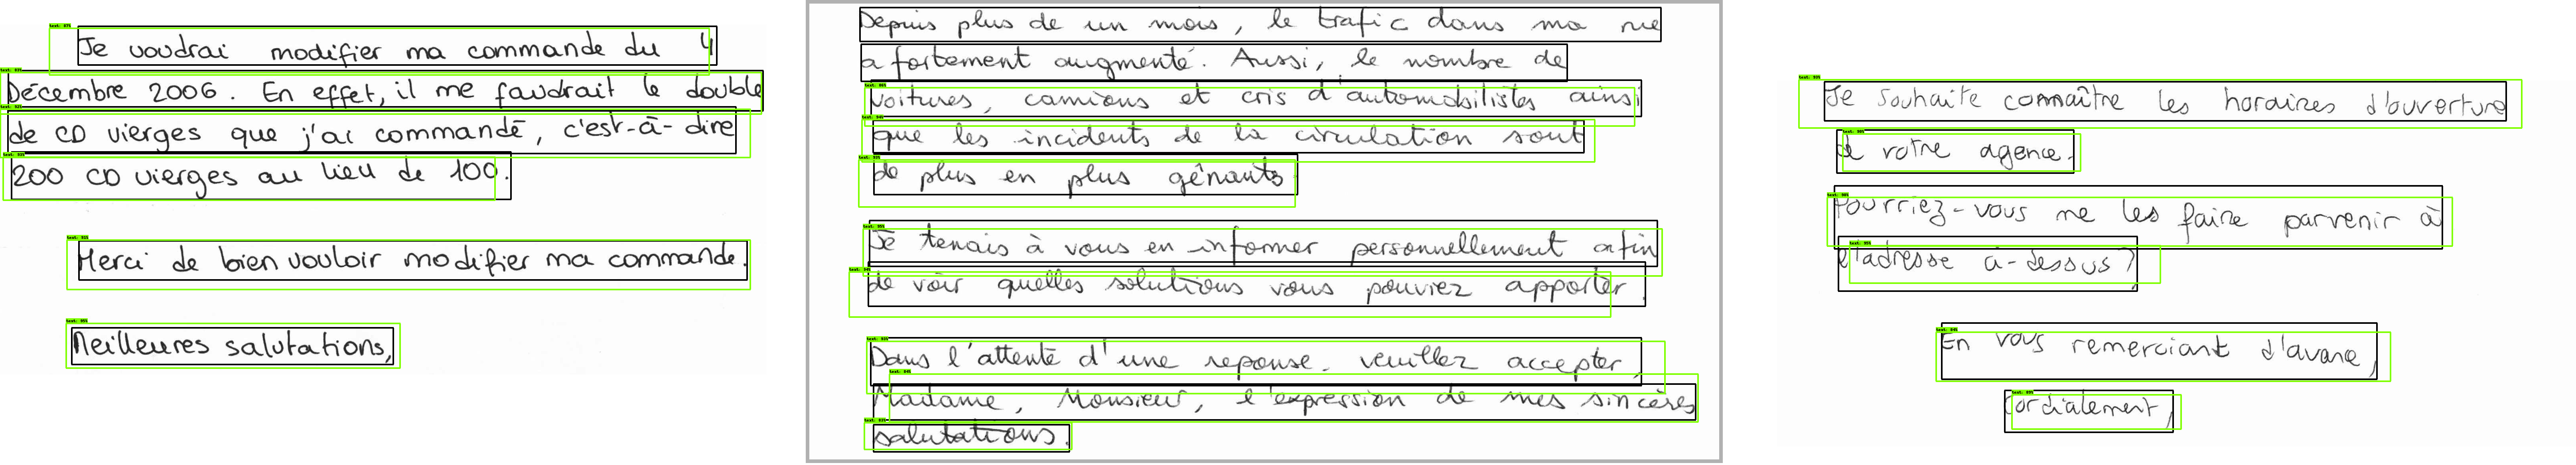 Je voudrai modifier ma commande du 4
Décembre 2006. En effet, il me faudrait le double
de CD vierges que j'ai commandé, c'est-à-dire
200 CD vierges au lieu de 100.
Merci de bien vouloir modifier ma commande.
Meilleures salutations,
Depuis plus de un mois, le trafic dans ma rue
a fortement augmenté. Aussi, le nombre de
voitures, camions et cris d'automobilistes ainsi
que les incidents de la circulation sont
de plus en plus gênants
Je tenais à vous en informer personnellement afin
de voir quelles solutions vous pouviez apporter.
Dans l'attente d'une reponse. veuillez accepter,
Madame, Monsieur, l'expression de mes sincères
salutations.
Je souhaite connaître les horaires d'ouverture
de votre agence.
Pourriez-vous me les faire parvenir à
l'adresse ci-dessus ?
En vous remerciant d'avance,
Cordialement,